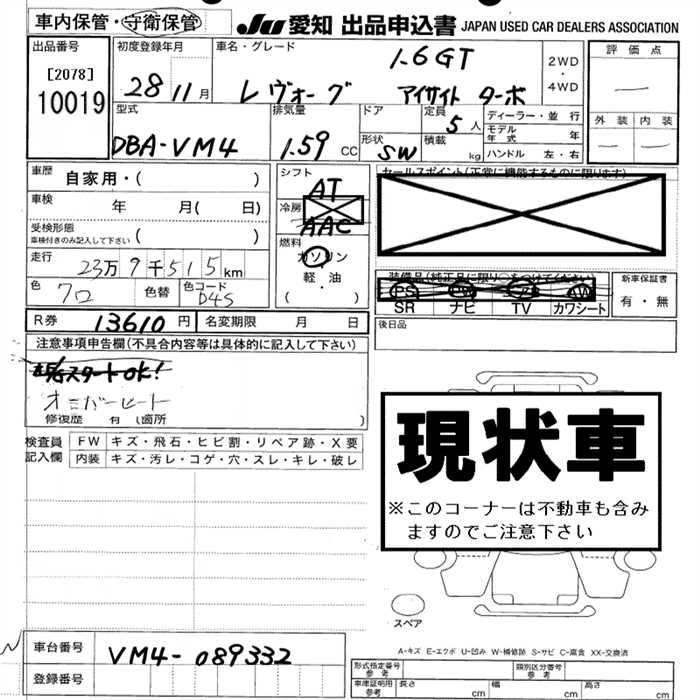 車内保管・守衛保管 JU 愛知 出品申込書 JAPAN USED CAR DEALERS ASSOCIATION
出品番号 初度登録年月 車名・グレード 1.6GT 2WD・4WD 評価点
[2078]
10019 28年 11月 レヴォーグ アイサイト ターボ —
型式 排気量 ドア 定員 5人 ディーラー・並行 外装 内装
モデル年式 年
DBA-VM4 1.59 CC 形状 SW 積載 kg ハンドル 左・右 — —
車歴 自家用・( ) シフト AT セールスポイント(正常に機能するものに限ります)
車検 年 月( 日) 冷房 AAC
受検形態
車検付きのみ記入して下さい ( ) 燃料 ガソリン
走行 23万9千515km 軽・油 装備品(純正品に限り○をつけてください) 新車保証書
色 クロ 色替 色コード D4S ( ) PS PW AW 有・無
SR ナビ TV カワシート
R券 13610円 名変期限 月 日 後日品
注意事項申告欄(不具合内容等は具体的に記入して下さい)
スタートOK!
オーバーヒート
修復歴 有(箇所 )
現状車
※このコーナーは不動車も含み
ますのでご注意下さい
検査員記入欄 FW キズ・飛石・ヒビ割・リペア跡・X要
内装 キズ・汚レ・コゲ・穴・スレ・キレ・破レ
スペア
A-キズ E-エクボ U-凹み W-補修跡 S-サビ C-腐食 XX-交換済
車台番号 VM4-089332
登録番号
形式指定番号 参考 類別区分番号 参考
車庫証明用 参考 長さ cm 幅 cm 高さ cm